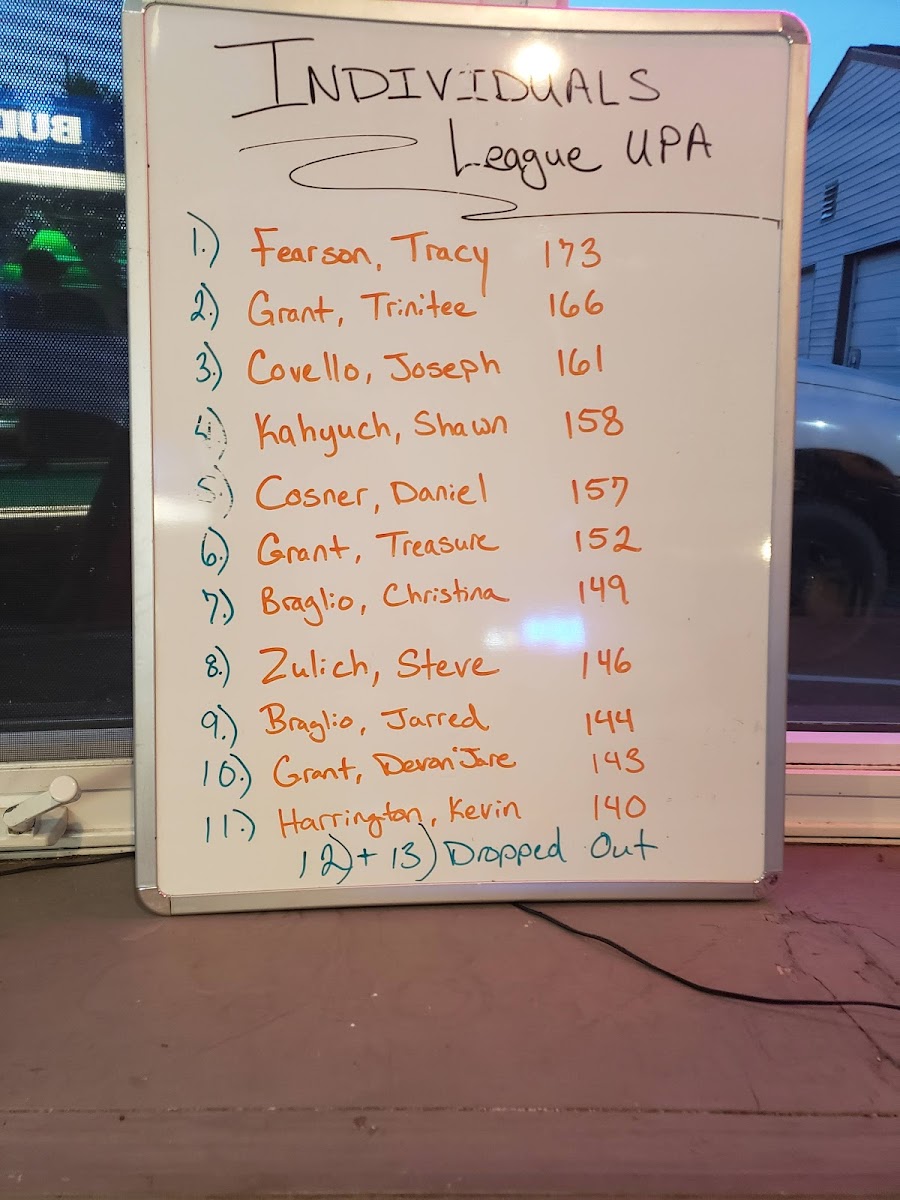 INDIVIDUALS
League UPA
BUD
1.) Fearson, Tracy 173
2.) Grant, Trinitee 166
3.) Covello, Joseph 161
4.) Kahyuch, Shawn 158
5.) Cosner, Daniel 157
6.) Grant, Treasure 152
7.) Braglio, Christina 149
8.) Zulich, Steve 146
9.) Braglio, Jarred 144
10.) Grant, Devon'Jare 143
11.) Harrington, Kevin 140
12)+ 13) Dropped Out